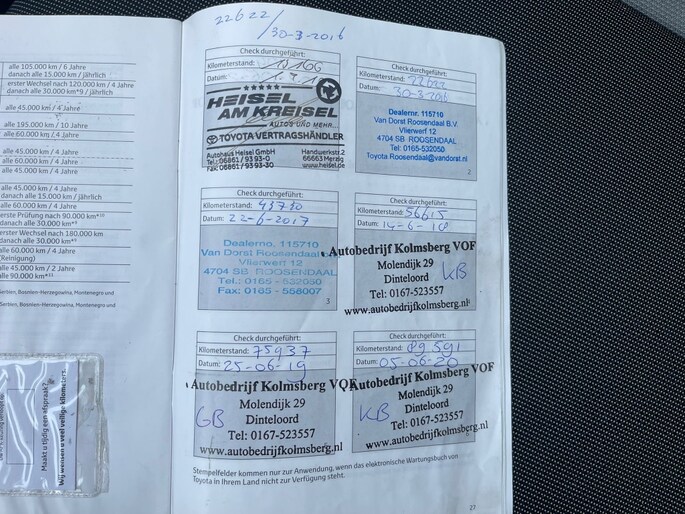 22622 / 30-3-2016
alle 105.000 km / 6 Jahre
danach alle 15.000 km / jährlich
erster Wechsel nach 120.000 km / 4 Jahre
danach alle 30.000 km*⁹ / jährlich
alle 45.000 km / 4 Jahre
alle 195.000 km / 10 Jahre
alle 60.000 km / 4 Jahre
alle 45.000 km / 4 Jahre
alle 60.000 km / 4 Jahre
alle 45.000 km / 4 Jahre
danach alle 15.000 km / jährlich
alle 60.000 km / 4 Jahre
erste Prüfung nach 90.000 km*¹⁰
danach alle 30.000 km*⁹
erster Wechsel nach 180.000 km
danach alle 30.000 km*⁹
alle 60.000 km / 4 Jahre
(Reinigung)
alle 45.000 km / 2 Jahre
alle 90.000 km*¹¹
Serbien, Bosnien-Herzegowina, Montenegro und
Serbien, Bosnien-Herzegowina, Montenegro und
Maakt u tijdig een afspraak?
Wij wensen u veel veilige kilometers.
Check durchgeführt:
Kilometerstand:
Datum:
HEISEL
AM KREISEL
AUTOS UND MEHR...
TOYOTA VERTRAGSHÄNDLER
Autohaus Heisel GmbH Handwerkstr.2
Tel.: 06861 / 93 93-0 66663 Merzig
Fax: 06861 / 93 93-30 www.heisel.de
Check durchgeführt:
Kilometerstand: 22622
Datum: 30-3-2016
Dealernr. 115710
Van Dorst Roosendaal B.V.
Vlierwerf 12
4704 SB Roosendaal
Tel: 0165-532050
Toyota.Roosendaal@vandorst.nl
2
Check durchgeführt:
Kilometerstand: 43730
Datum: 22-6-2017
Dealerno. 115710
Van Dorst Roosendaal
Vlierwerf 12
4704 SB ROOSENDAAL
Tel.: 0165 - 532050
Fax: 0165 - 558007
3
Check durchgeführt:
Kilometerstand: 56615
Datum: 14-6-18
Autobedrijf Kolmsberg VOF
Molendijk 29
Dinteloord
Tel: 0167-523557
www.autobedrijfkolmsberg.nl
KB
Check durchgeführt:
Kilometerstand: 75937
Datum: 25-06-19
Autobedrijf Kolmsberg VOF
Molendijk 29
Dinteloord
Tel: 0167-523557
www.autobedrijfkolmsberg.nl
GB
Check durchgeführt:
Kilometerstand: 89591
Datum: 05-06-20
Autobedrijf Kolmsberg VOF
Molendijk 29
Dinteloord
Tel: 0167-523557
www.autobedrijfkolmsberg.nl
KB
Stempelfelder kommen nur zur Anwendung, wenn das elektronische Wartungsbuch von
Toyota in Ihrem Land nicht zur Verfügung steht.
27